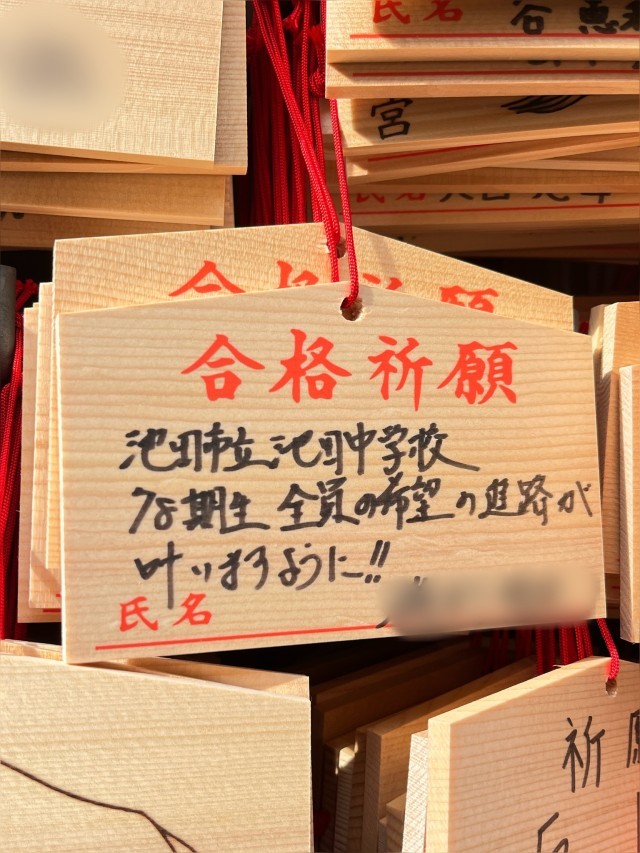 氏名
谷 恵
宮
氏名
合格祈願
合格祈願
池田市立池田中学校
78期生 全員の希望の進路が
叶いますように!!
氏名
祈願